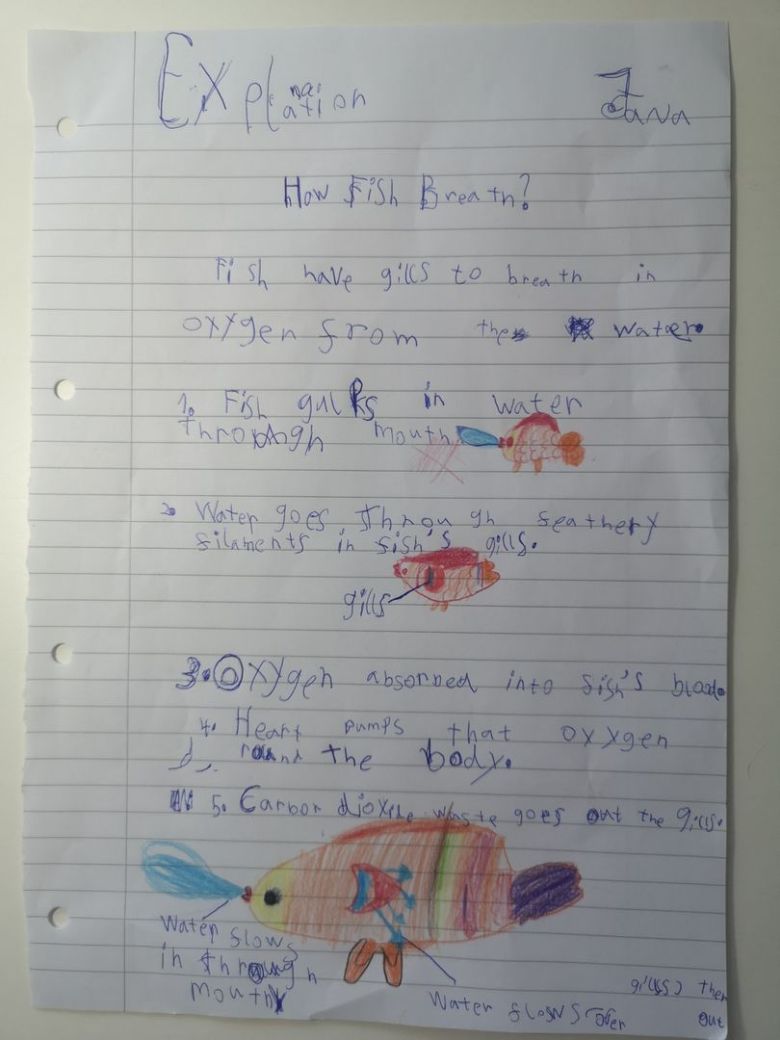 Explanation
Jana
How Fish Breath?
Fish have gills to breath in
oxygen from the water.
1. Fish gulps in water
through mouth
2. Water goes through feathery
filaments in fish's gills.
gills
3. Oxygen absorbed into fish's blood.
4. Heart pumps that oxygen
round the body.
5. Carbon dioxide waste goes out the gills.
Water flows
in through
mouth
Water flows over gills then
out